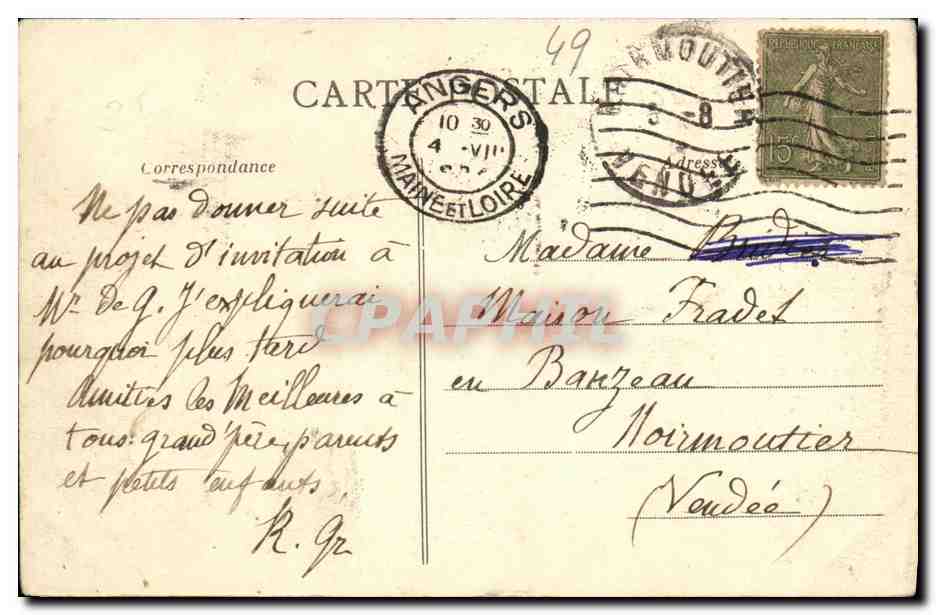 49
CARTE POSTALE
ANGERS
10 30
4 VII
MAINE ET LOIRE
NOIRMOUTIER
5 -8
VENDEE
REPUBLIQUE FRANÇAISE
15c
Correspondance
Adresse
Ne pas donner suite
au projet d'invitation à
Mr. de G. J'expliquerai
pourquoi plus tard
Amitiés les Meilleures à
tous: grand'père, parents
et petits enfants.
R. Gr
Madame
Maison Fradet
en Banzeau
Noirmoutier
(Vendée)
CPAPHIL